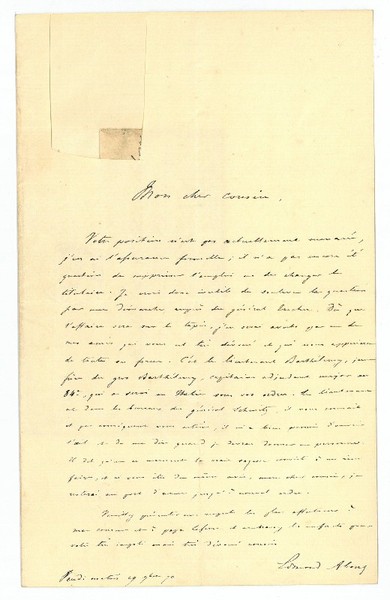 Mon cher cousin,
Votre position n'est pas actuellement menacée,
j'en ai l'assurance formelle ; il n'a pas encore été
question de supprimer l'emploi ou de changer le
titulaire. Je crois donc inutile de soulever la question
par une démarche auprès du général Trochu. Dès que
l'affaire sera sur le tapis, j'en serai
mes amis qui vous est tout dévoué et qui nous
de toutes ses forces. C'est le lieutenant Barthélemy, jeune
frère du gros Barthélemy, capitaine adjudant major au
84e, qui a servi en Italie sous vos ordres. Le lieutenant
est dans les bureaux du général Schmitz, il vous connaît
et par conséquent vous estime, il m'a bien promis d'avoir
l'œil et de me dire quand je devrai donner en personne.
Il dit qu'en ce moment la vraie sagesse consiste à ne rien
faire, et si vous êtes du même avis, mon cher cousin, je
resterai au port d'armes jusqu'à nouvel ordre.
Veuillez présenter mes respects les plus affectueux à
ma cousine et à papa et embrassez les enfants pour
votre très respectueux et très dévoué cousin
Edmond About
Vendredi matin 29 9bre 70